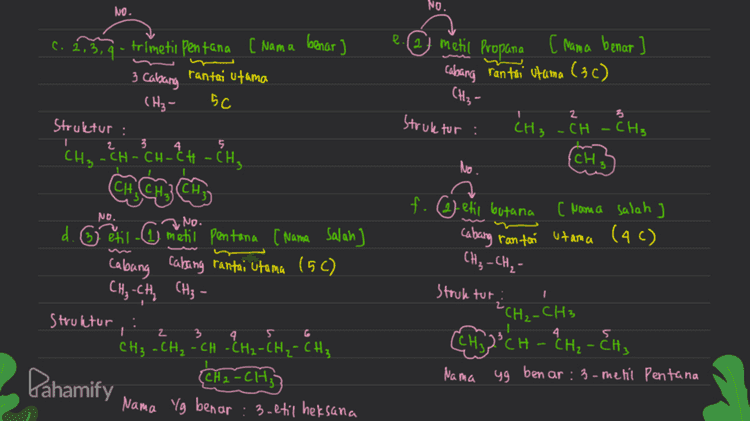 No.
c. 2,3,4 - trimetil pentana [Nama benar]
3 cabang rantai utama
CH3- 5C
Struktur :
1 2 3 4 5
CH3 - CH - CH - CH - CH3
CH3 CH3 CH3
No. No.
d. 3 etil - 1 metil pentana [Nama Salah]
Cabang Cabang rantai utama (5C)
CH3-CH2 CH3-
Struktur :
1 2 3 4 5 6
CH3 - CH2 - CH - CH2 - CH2 - CH3
CH2 - CH3
Nama yg benar : 3-etil heksana
No.
e. 2 metil propana [Nama benar]
cabang rantai utama (3C)
CH3-
Struktur :
1 2 3
CH3 - CH - CH3
CH3
No.
f. 2-etil butana [Nama salah]
cabang rantai utama (4C)
CH3-CH2-
Struktur :
2 1
CH2-CH3
3 4 5
CH3 CH - CH2 - CH3
Nama yg benar : 3-metil pentana
Pahamify